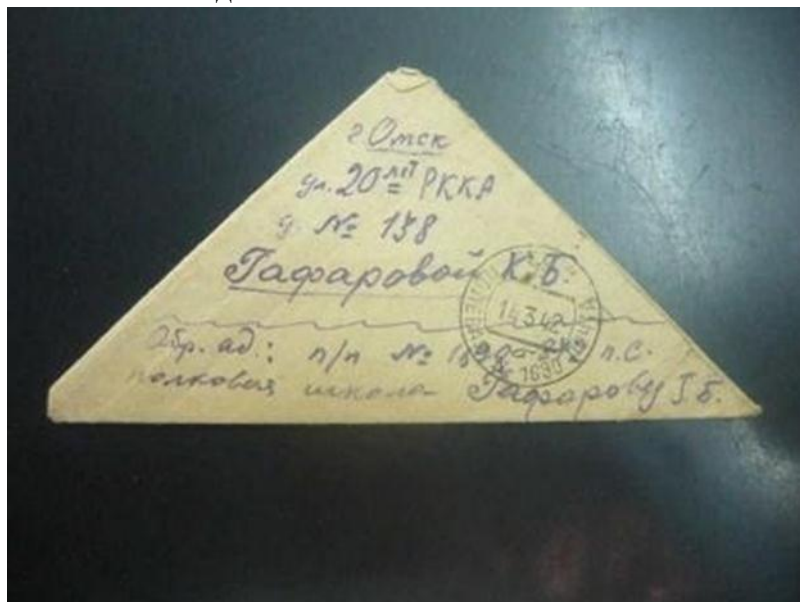 г Омск
ул. 20 лет РККА
д. № 138
Гафаровой К. Б.
14.3.42
№ 1690
Обр. ад.: п/п № п.с.
полковая школа Гафарову Г. Б.